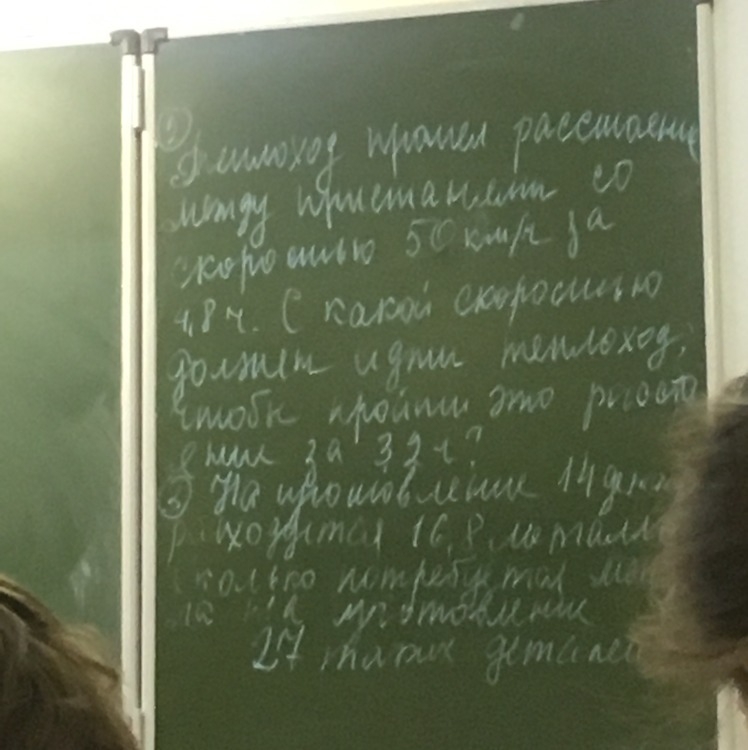 1
Теплоход прошел расстояние
между пристанями со
скоростью 50 км/ч за
4,8 ч. С какой скоростью
должен идти теплоход,
чтобы пройти это расстоя
яние за 3 2 ч?
2 На изготовление 14 дета
расходуется 16,8 металла
Сколько потребуется мет
ла на изготовление
27 таких деталей